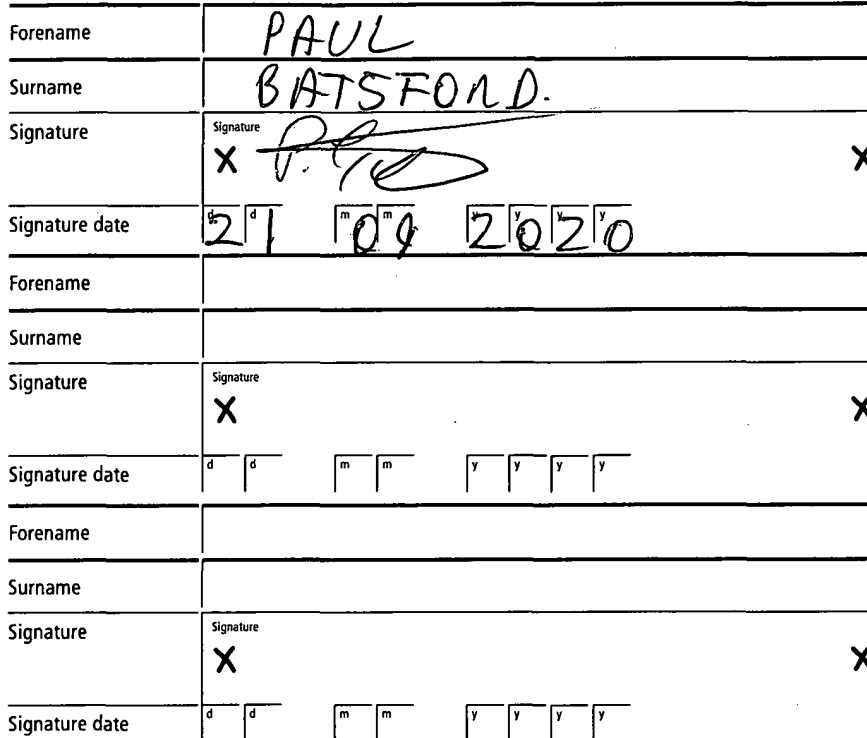 Forename PAUL
Surname BATSFORD.
Signature Signature
X X
Signature date d d m m y y y y
21 09 2020
Forename
Surname
Signature Signature
X X
Signature date d d m m y y y y
Forename
Surname
Signature Signature
X X
Signature date d d m m y y y y